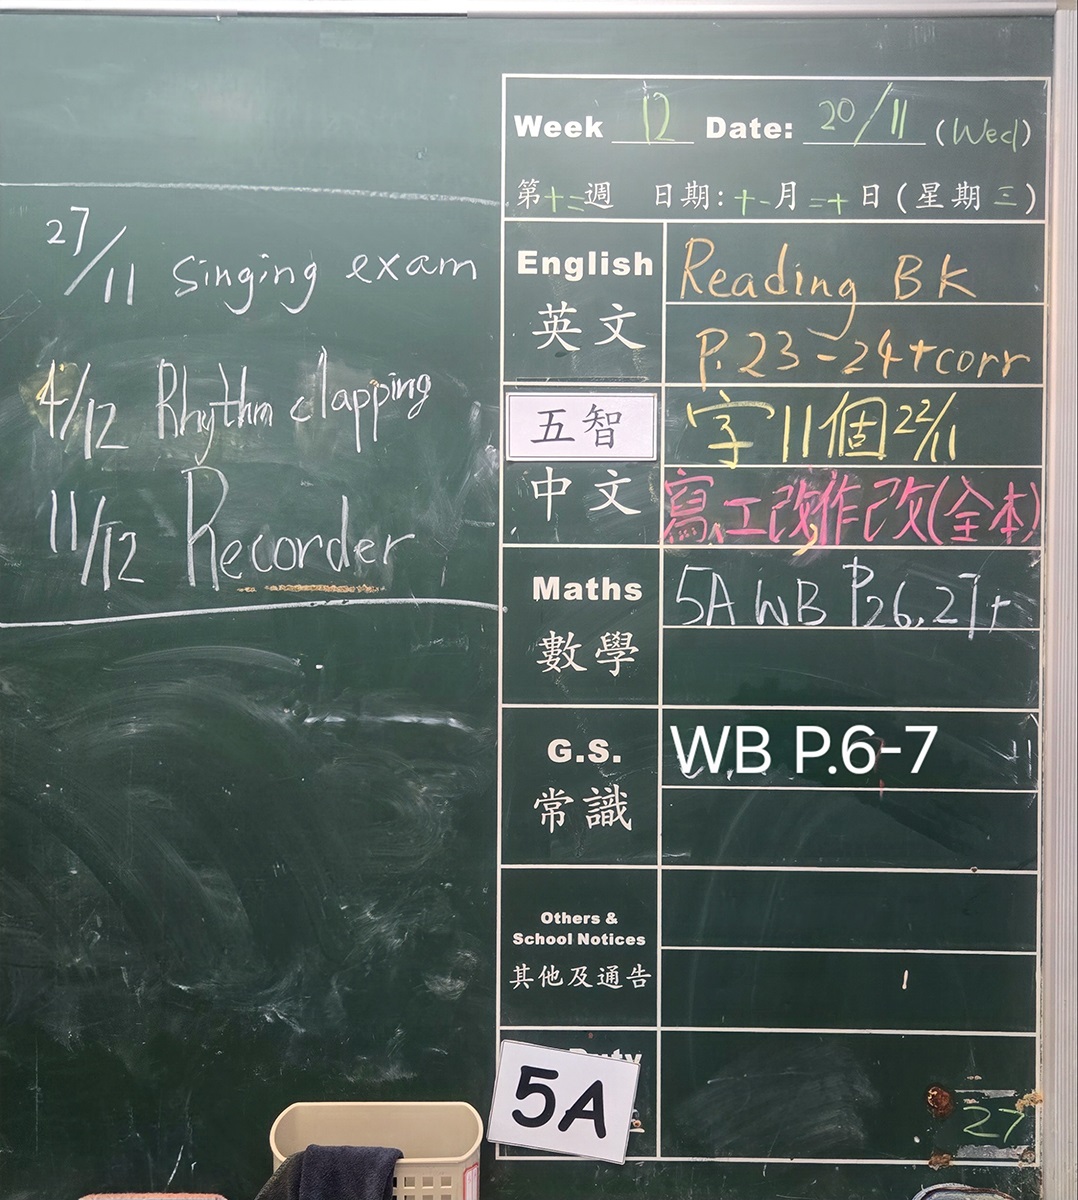 27/11 singing exam
4/12 Rhythm clapping
11/12 Recorder
Week 12 Date: 20/11 (Wed)
第十二週 日期:十一月二十日(星期三)
English
英文
Reading BK
P.23-24+corr
五智
中文
字11個22/11
寫、工改作改(全本)
Maths
數學
5A WB P26,27+
G.S.
常識
WB P.6-7
Others &
School Notices
其他及通告
5A
27